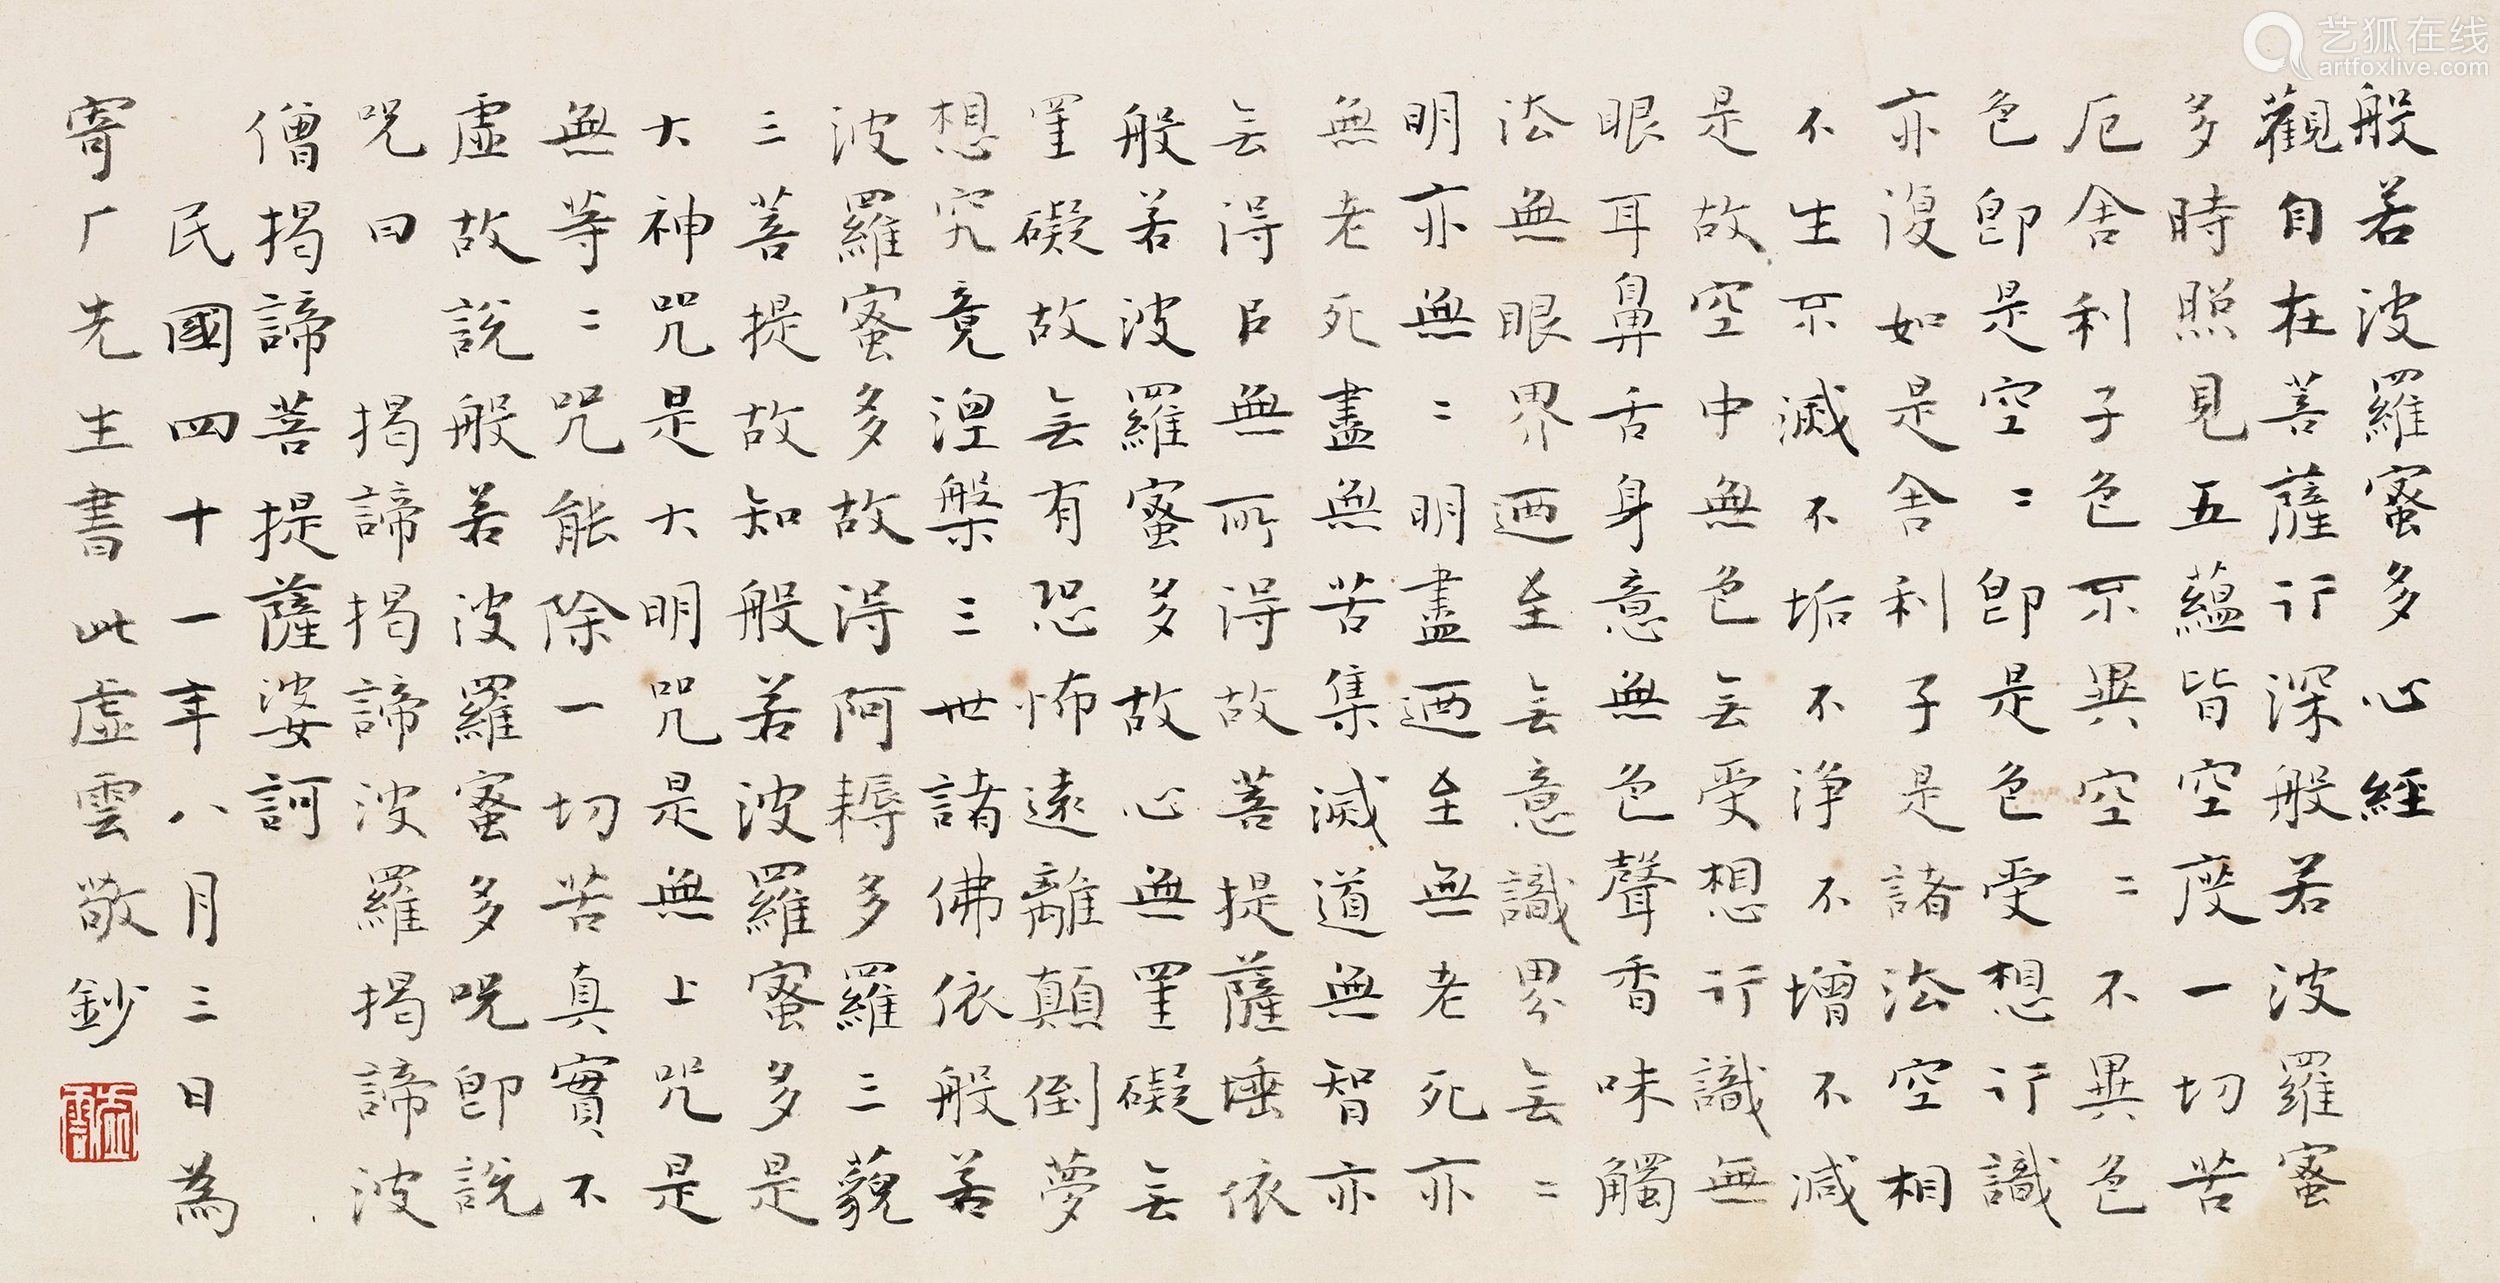 般若波羅蜜多心經
觀自在菩薩行深般若波羅蜜
多時照見五蘊皆空度一切苦
厄舍利子色不異空二不異色
色即是空二即是色受想行識
亦復如是舍利子是諸法空相
不生不滅不垢不淨不增不減
是故空中無色无受想行識無
眼耳鼻舌身意無色聲香味觸
法無眼界迺至无意識界无二
明亦無二明盡迺至無老死亦
無老死盡無苦集滅道無智亦
无得㠯無所得故菩提薩埵依
般若波羅蜜多故心無罣礙无
罣礙故无有恐怖遠離顛倒夢
想究竟涅槃三世諸佛依般若
波羅蜜多故得阿耨多羅三藐
三菩提故知般若波羅蜜多是
大神咒是大明咒是無上咒是
無等二咒能除一切苦真實不
虛故說般若波羅蜜多呪即說
呪曰 揭諦揭諦波羅揭諦波
僧揭諦菩提薩婆訶
民國四十一年八月三日為
寄广先生書此虛雲敬鈔
虛雲
艺狐在线
artfoxlive.com